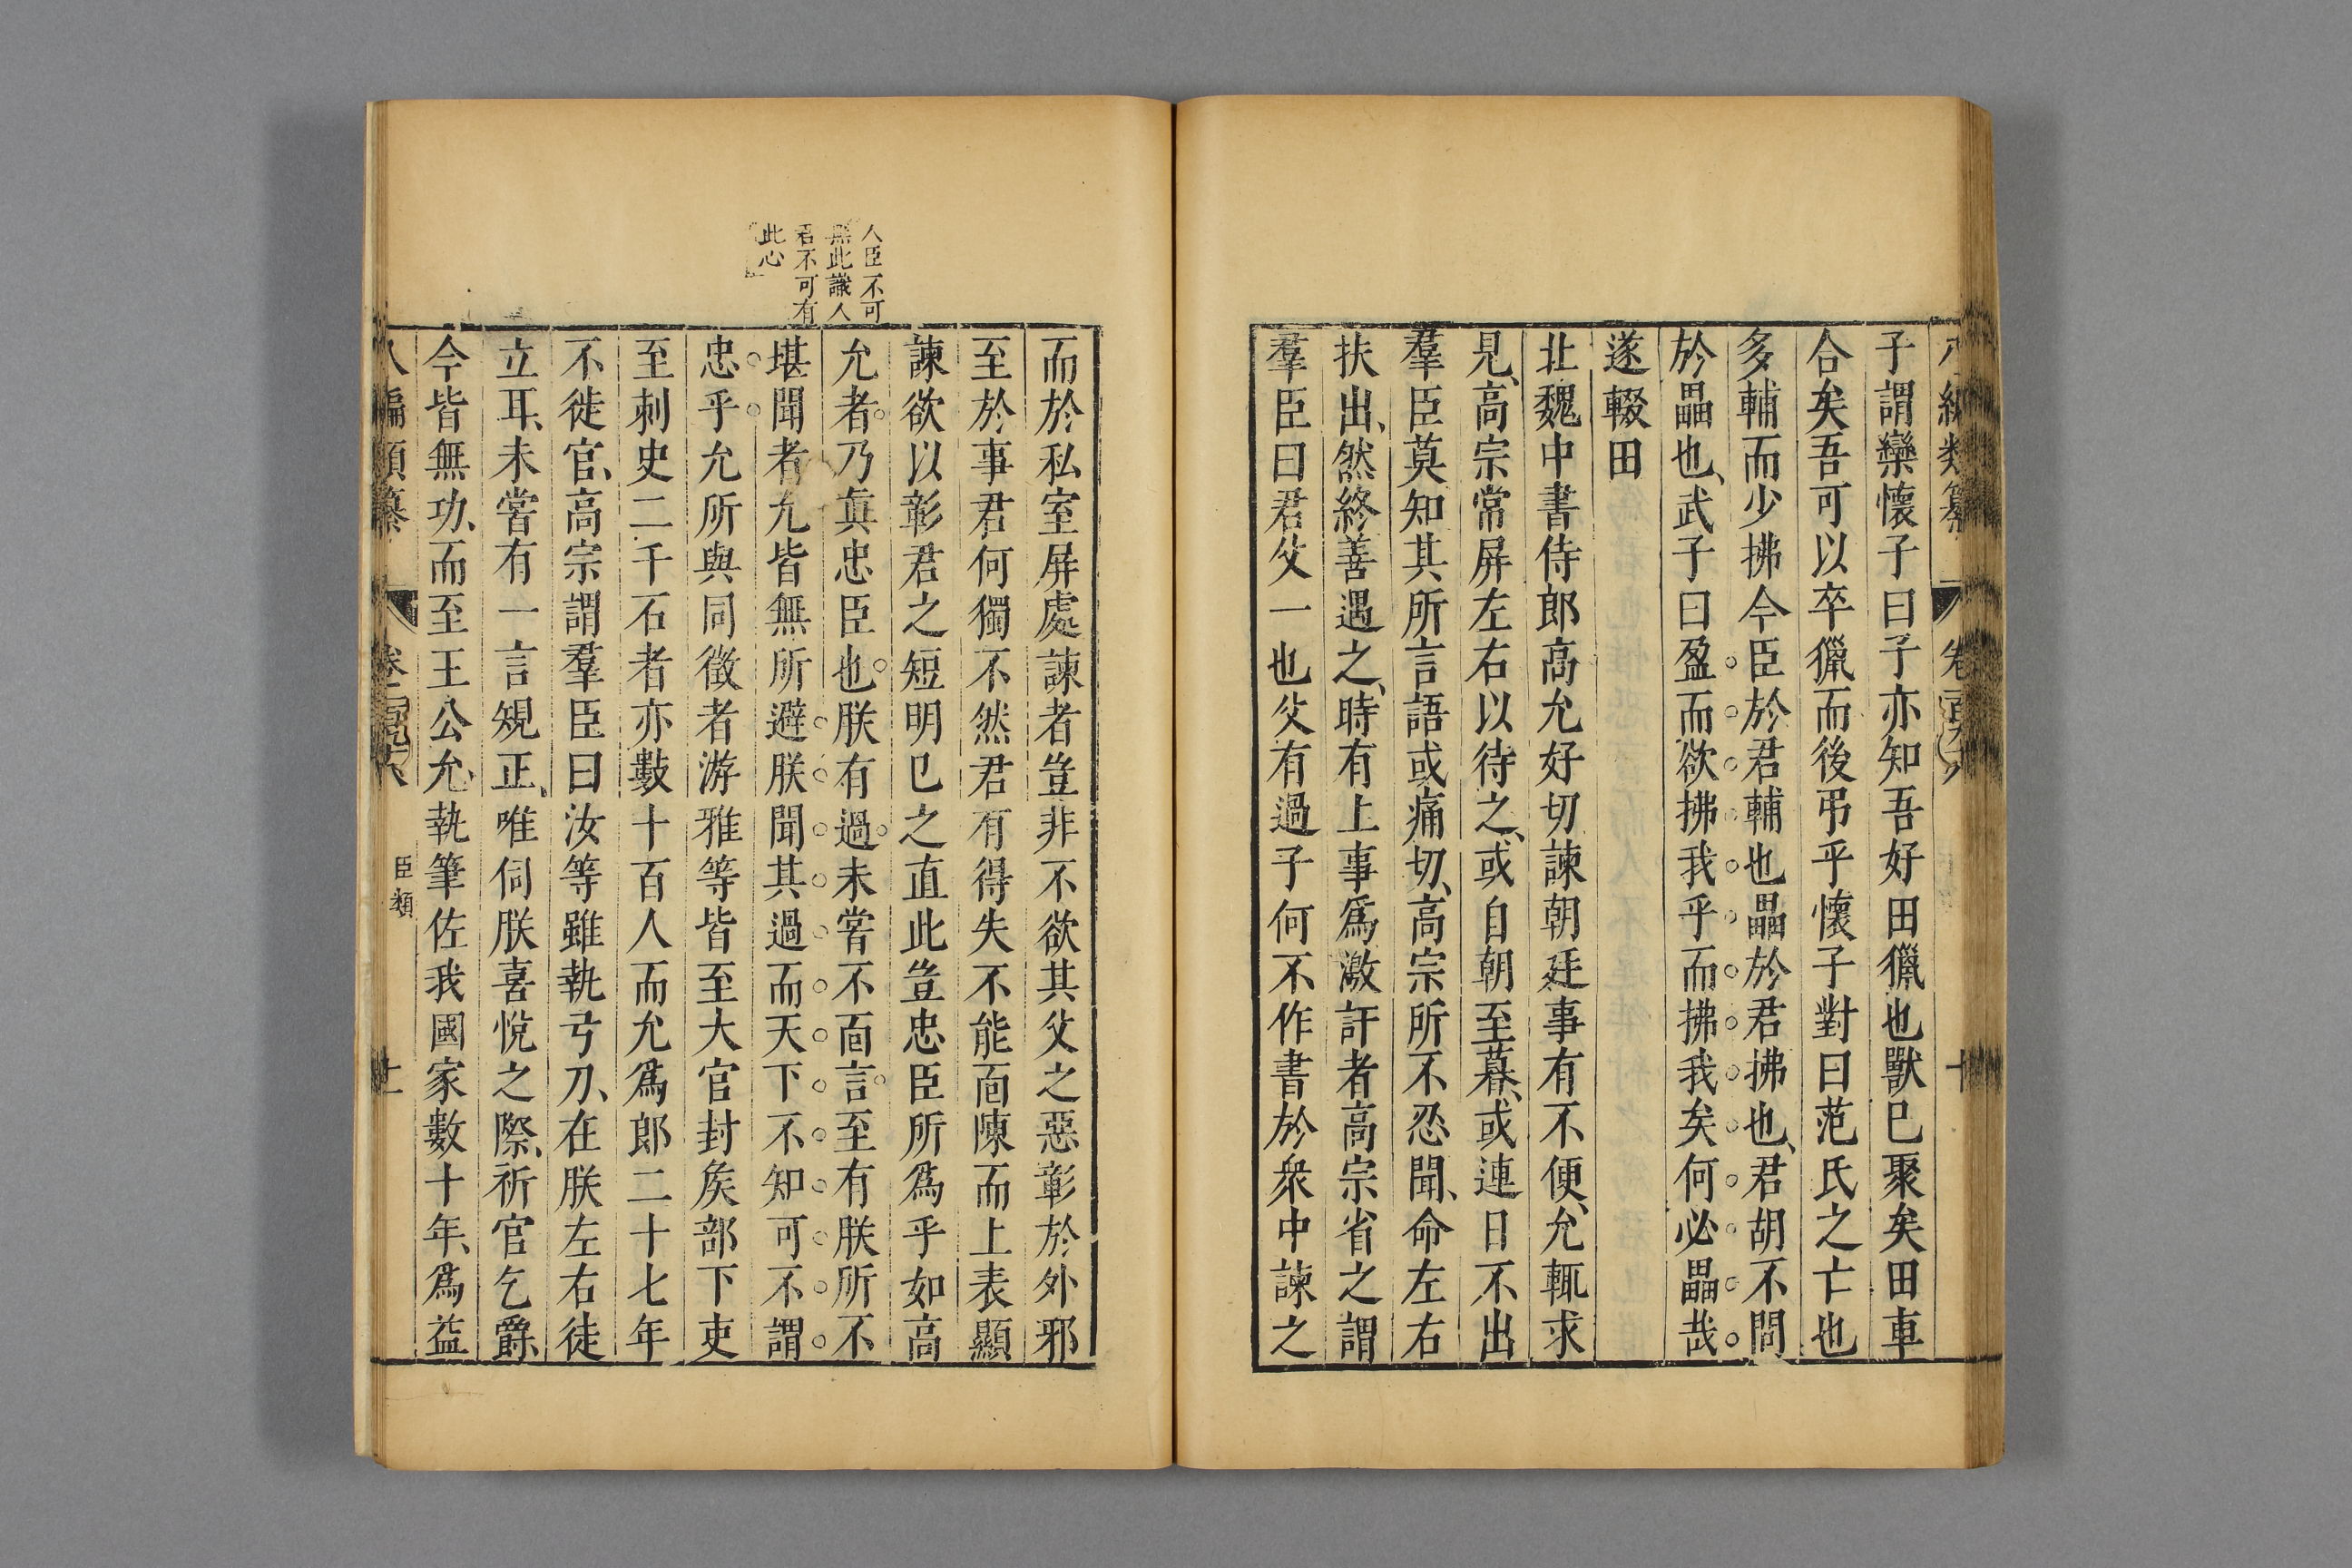 子謂欒懷子曰子亦知吾好田獵也獸巳聚矣田車
合矣吾可以卒獵而後弔乎懷子對曰范氏之亡也
多輔而少拂今臣於君輔也畾於君拂也、君胡不問
於畾也、武子曰盈而欲拂我乎而拂我矣何必畾哉
遂輟田
北魏中書侍郎高允好切諫朝廷事有不便、允輒求
見、高宗常屏左右以待之、或自朝至暮、或連日不出
羣臣莫知其所言語或痛切、高宗所不忍聞、命左右
扶出、然終善遇之、時有上事爲激訐者高宗省之謂
羣臣曰君父一也父有過子何不作書於衆中諫之
而於私室屏處諫者豈非不欲其父之惡彰於外邪
至於事君何獨不然君有得失不能面陳而上表顯
諫欲以彰君之短明巳之直此豈忠臣所爲乎如高
允者乃眞忠臣也朕有過未嘗不面言至有朕所不
堪聞者允皆無所避朕聞其過而天下不知可不謂
忠乎允所與同徵者游雅等皆至大官封矦部下吏
至刺史二千石者亦數十百人而允爲郎二十七年
不徙官、高宗謂羣臣曰汝等雖執弓刀、在朕左右徒
立耳、未嘗有一言規正、唯伺朕喜悅之際、祈官乞爵、
今皆無功、而至王公允、執筆佐我國家數十年、爲益
人臣不可
無此識人
君不可有
此心
臣類